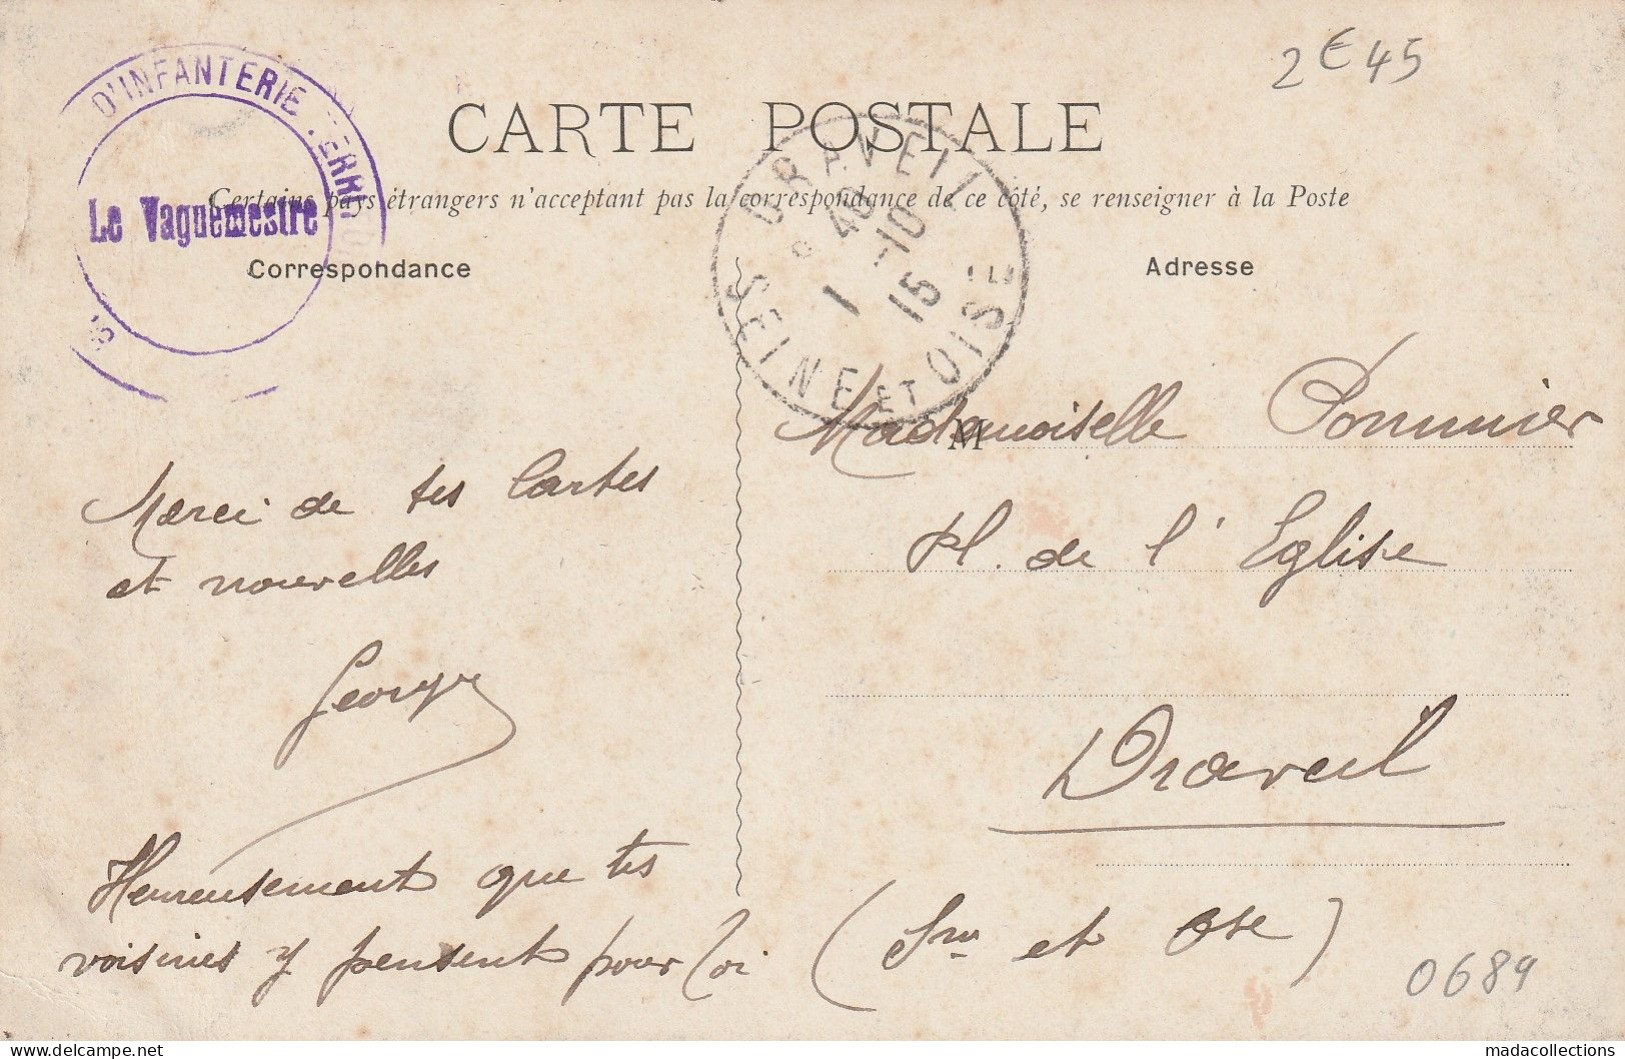 2€45
D'INFANTERIE TERRITO
Le Vaguemestre
CARTE POSTALE
Certains pays étrangers n'acceptent pas la correspondance de ce côté, se renseigner à la Poste
DRAVEIL
1 40
1-10
15
SEINE ET OISE
Correspondance
Adresse
M
Mademoiselle Pommier
Pl. de l'Eglise
Draveil
(Sne et Ose)
Merci de tes Cartes
et nouvelles
Heureusement que tes
voisines y pensent pour toi
0689
madacollections